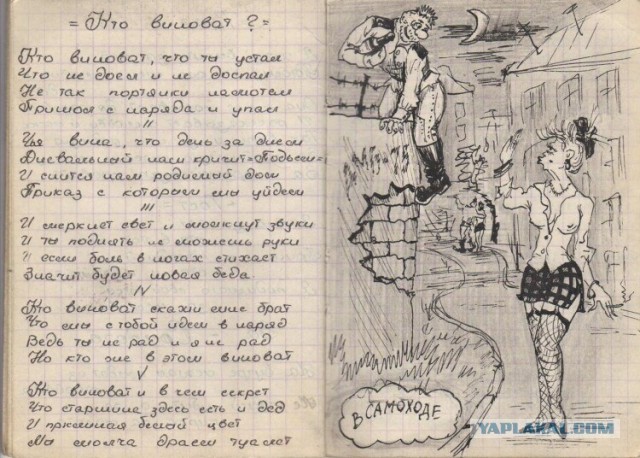 = Кто виноват ? =
Кто виноват, что ты устал
Что не доел и не доспал
Не так портянки намотал
Пришол с наряда и упал
II
Чья вина, что день за днем
Дневальный нам кричит "Подъем"
И снится нам родимый дом
Приказ с которым мы уйдем
III
И меркнет свет и молкнут звуки
И ты поднять не сможешь руки
И если боль в ногах стихает
Значит будет новая беда.
IV
Кто виноват скажи мне брат
Что мы с тобой идем в наряд
Ведь ты не рад и я не рад
Но кто же в этом виноват
V
Кто виноват и в чем секрет
Что старшина здесь есть и дед
И принимая белый цвет
Мы молча драем туалет
ДМБ-75
В САМОХОДЕ
YAPLAKAL.COM